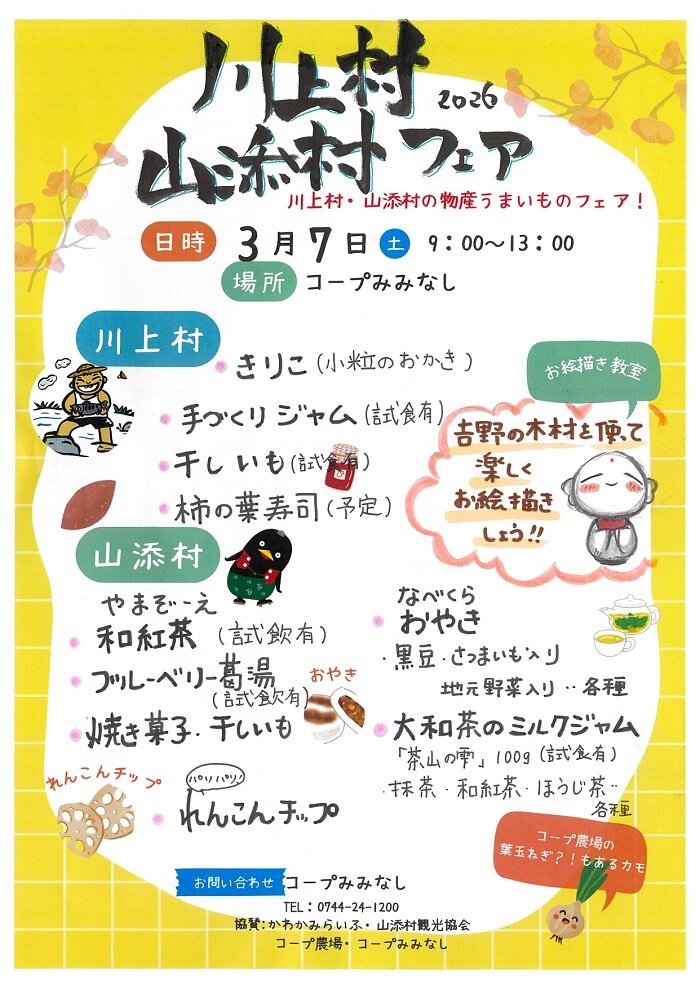 川上村
2026
山添村フェア
川上村・山添村の物産うまいものフェア！
日時 3月7日 土 9：00～13：00
場所 コープみみなし
川上村
きりこ（小粒のおかき）
手づくりジャム（試食有）
干しいも（試食有）
柿の葉寿司（予定）
お絵描き教室
吉野の木材を使って
楽しく
お絵描き
しよう!!
山添村
やまぞーえ
和紅茶（試飲有）
ブルーベリー葛湯
（試飲有）
焼き菓子・干しいも
おやき
れんこんチップ
パリパリ!
れんこんチップ
なべくら
おやき
・黒豆・さつまいも入り
地元野菜入り‥各種
大和茶のミルクジャム
「茶山の雫」100g（試食有）
・抹茶・和紅茶・ほうじ茶‥
各種
コープ農場の
葉玉ねぎ？！もあるカモ
お問い合わせ コープみみなし
TEL：0744-24-1200
協賛：かわかみらいふ・山添村観光協会
コープ農場・コープみみなし